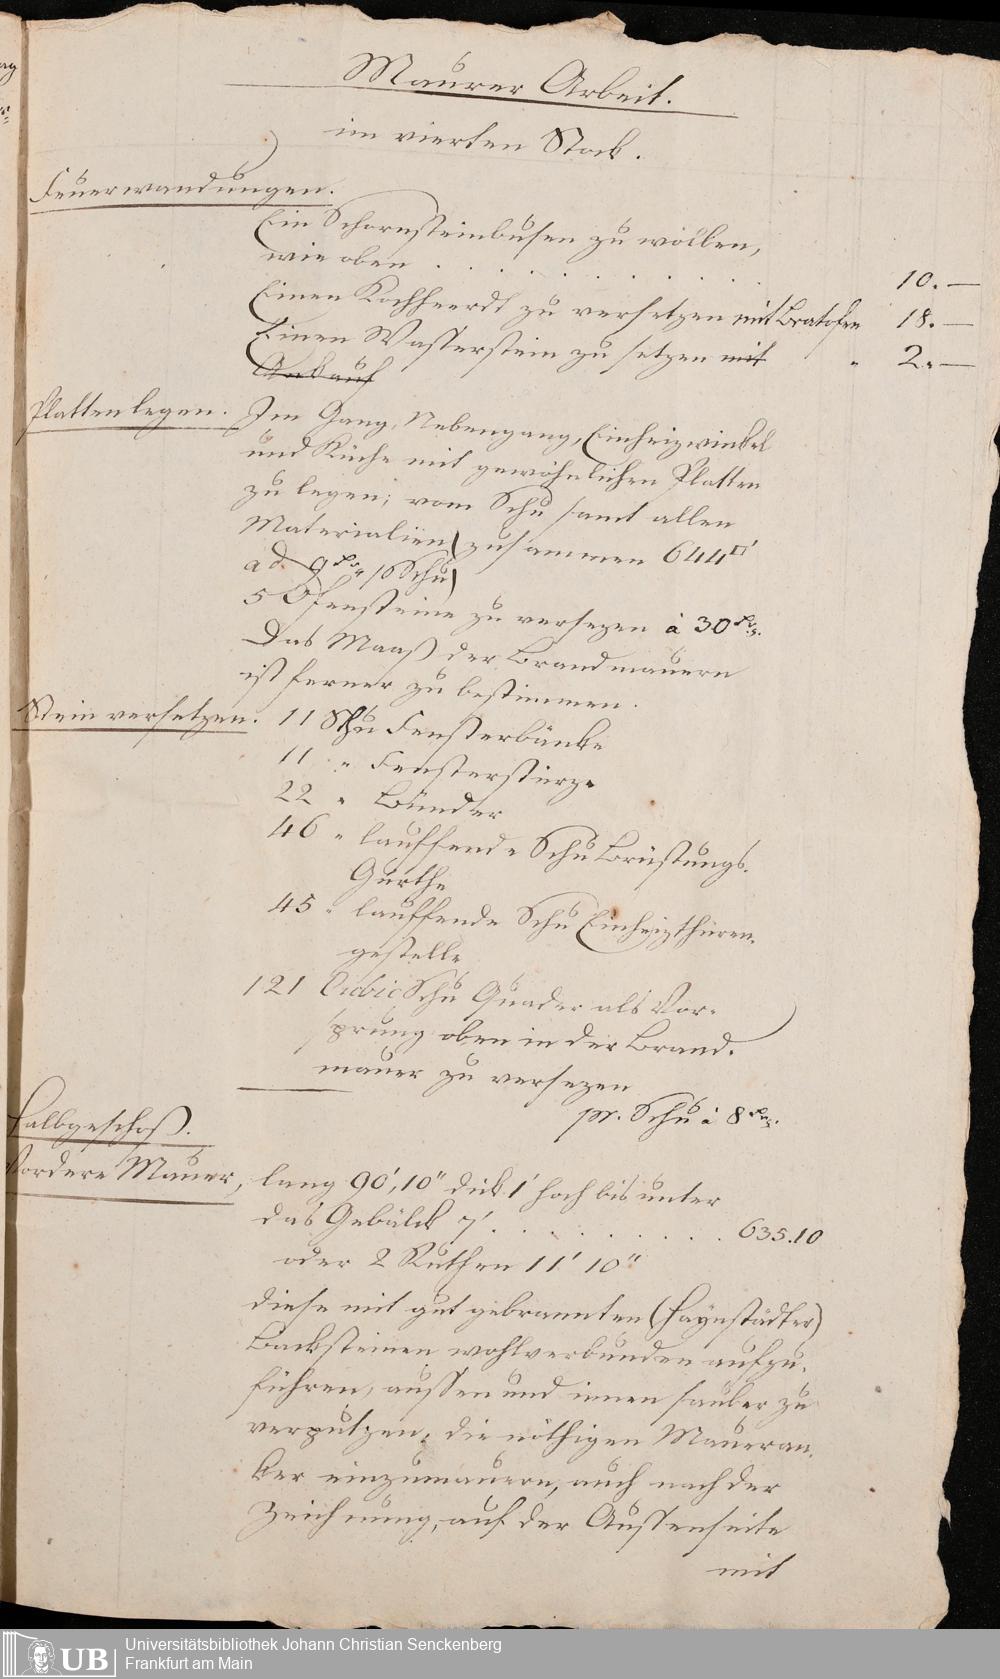 Maurer Arbeit.
im vierten Stock.
Feuerwandungen.
Ein Schornsteinbusen zu wölben,
wie oben . . . . . . . . . 10.—
Einen Kochheerdt zu versetzen mit Bratofen 18.—
Einen Wasserstein zu setzen mit " 2.—
Ankauf
Plattenlegen. Im Gang, Nebengang, Einheizwinkel
und Küche mit gewöhnlichen Platten
zu legen; vom Schu samt allen
Materialien (zusammen 644□'
ad 9 /□Schu)
5 Ofensteine zu versezen à 30
Das Maaß der Brandmauern
ist ferner zu bestimmen.
Stein versetzen. 11 Schu Fensterbänke
11 " Fensterstürze
22 " Bänder
46 " lauffende Schu Brüstungs-
Gurthe
45 " lauffende Schu Einheizthüren-
gestelle
121 CubicSchu Quader als Vor-
sprung oben in der Brand-
mauer zu versezen
pr. Schu à 8
Halbgeschoß.
Vordere Mauer, lang 90', 10" dick 1' hoch bis unter
das Gebälck 7' . . . . . . . . 635.10
oder 2 Ruthen 11' 10"
diese mit gut gebrannten (Haynstädter)
Backsteinen wohlverbunden aufzu-
führen, aussen und innen sauber zu
verputzen, die nöthigen Maueran-
ker einzumauern, auch nach der
Zeichnung, auf der Aussenseite
mit
UB
Universitätsbibliothek Johann Christian Senckenberg
Frankfurt am Main